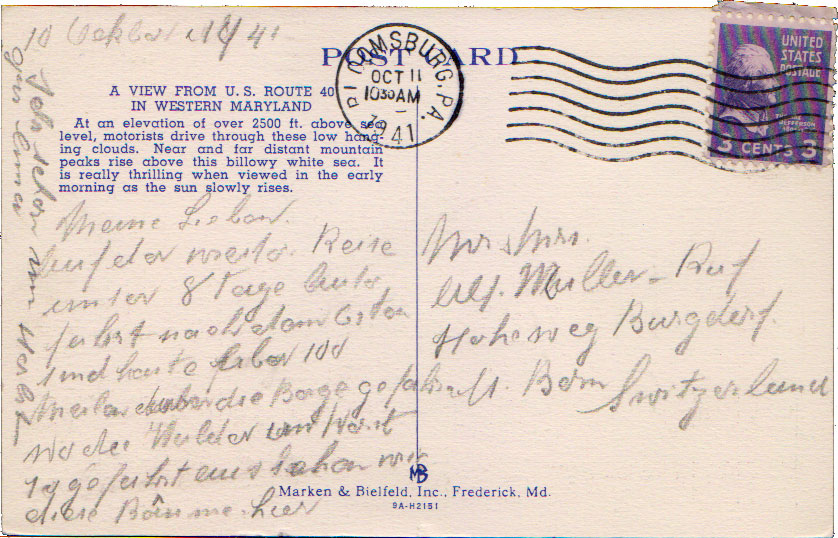 10 Oktober 1941
POST CARD
BLOOMSBURG, PA.
OCT 11
10 30 AM
1941
UNITED
STATES
POSTAGE
3 CENTS 3
A VIEW FROM U. S. ROUTE 40
IN WESTERN MARYLAND
At an elevation of over 2500 ft. above sea
level, motorists drive through these low hang-
ing clouds. Near and far distant mountain
peaks rise above this billowy white sea. It
is really thrilling when viewed in the early
morning as the sun slowly rises.
Meine Lieben.
Auf der Reise
unser 8 Tage Auto
fahrt nach dem Osten
sind heute über 100
Meilen über die Berge gefahren
wo die Wälder
aus sehen wir
diese Bäume hier
Mr & Mrs.
Alf. Müller-Ruf
Hoheweg Burgdorf.
Kt. Bern
Switzerland
MB
Marken & Bielfeld, Inc., Frederick, Md.
9A-H2151